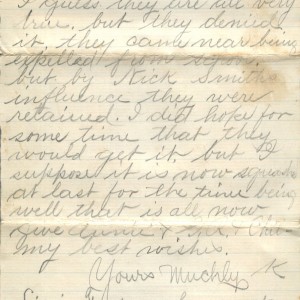 I guess they are all very
true. but they denied
it. they came near being
expelled from
but by Nick Smiths
influence they were
retained. I did hope for
some time that they
would get it. but I
suppose it is now squashed
at last for the time being
well that is all now
Give Annie &
my best wishes.
Yours Muchly K